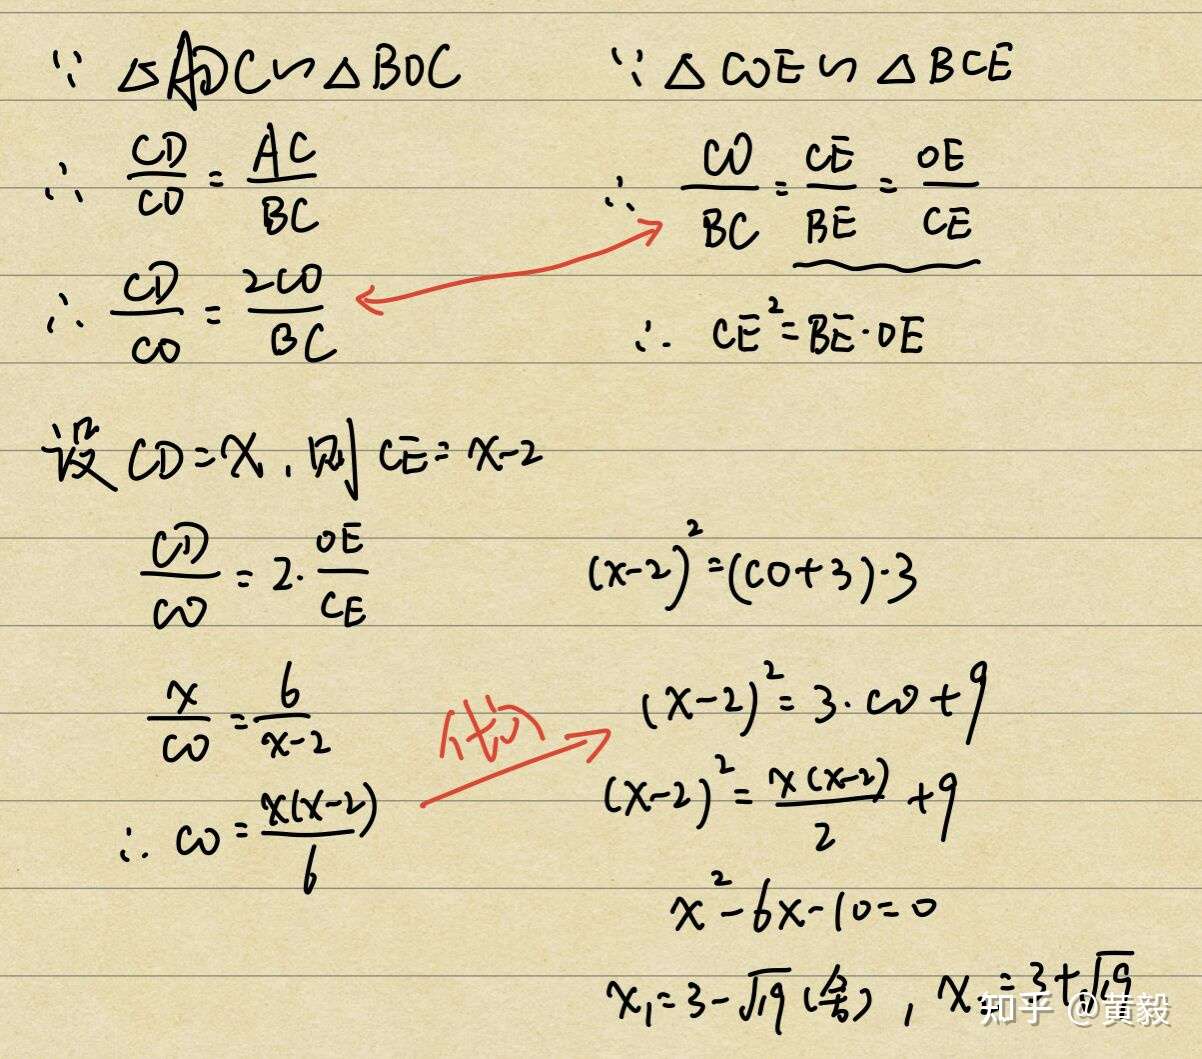 ∵ △ADC∽△BOC
∴ CD/CO = AC/BC
∴ CD/CO = 2CO/BC
∵ △COE∽△BCE
∴ CO/BC = CE/BE = OE/CE
∴ CE²=BE·OE
设CD=x,则CE=x-2
CD/CO = 2·OE/CE
x/CO = 6/(x-2)
∴ CO = x(x-2)/6
代入
(x-2)²=(CO+3)·3
(x-2)²=3·CO+9
(x-2)²= x(x-2)/2 +9
x²-6x-10=0
x₁=3-√19(舍), x₂=3+√19
知乎 @黄毅